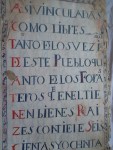 ASI VINCULADA
COMO LIBRES
TANTO EL OS VEZI
DEESTE PUEBLO QU
ANTO EL OS FORA
TEROS QE NEL TIE
NEN BIENES RAI
ZES CON ELDE SEIS
CIENTAS Y OCHNTA